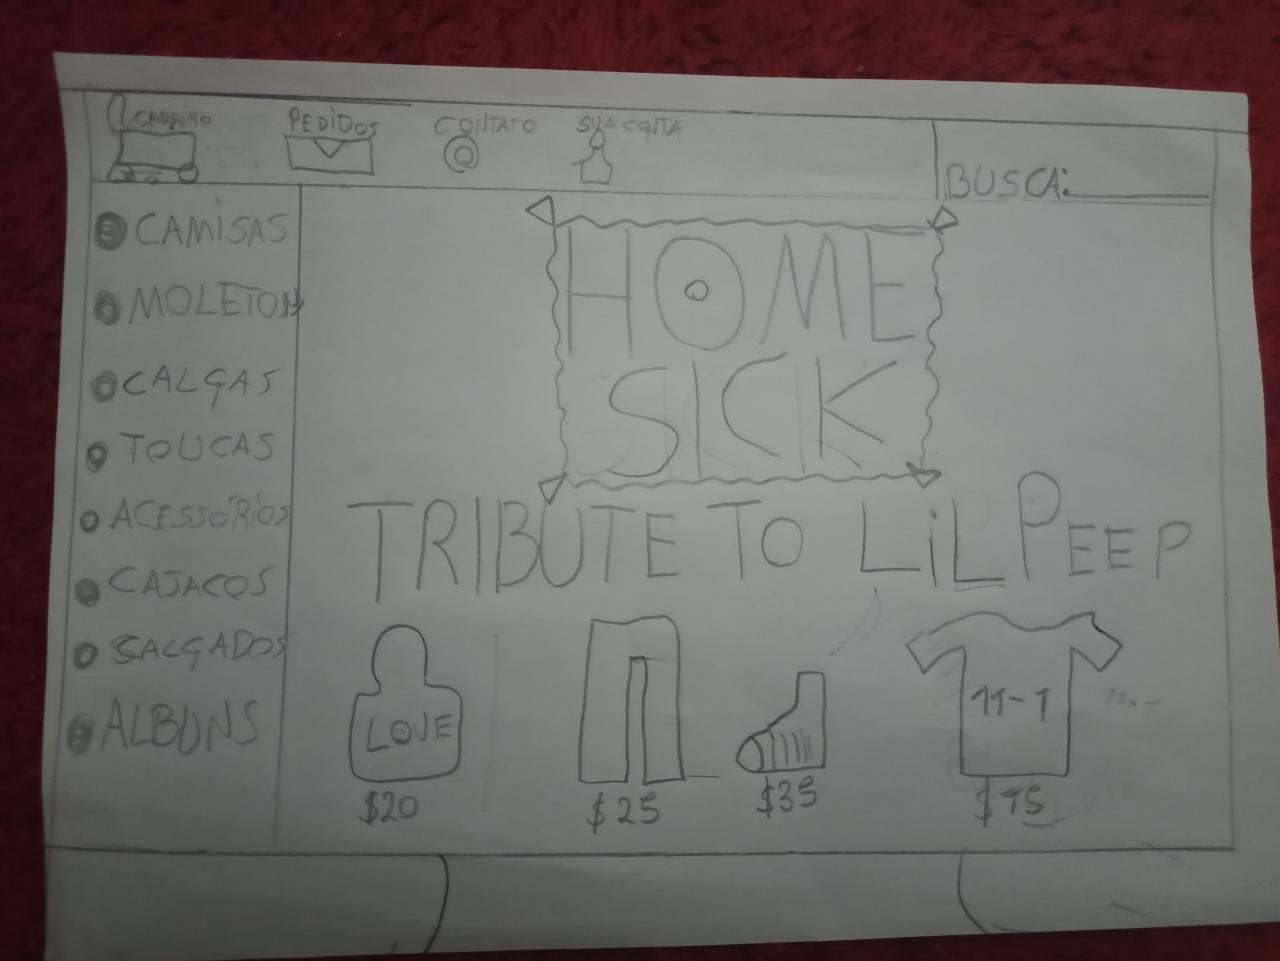 CARRINHO
PEDIDOS
CONTATO
SUA CONTA
BUSCA:
CAMISAS
MOLETONS
CALÇAS
TOUCAS
ACESSÓRIOS
CASACOS
SALGADOS
ALBUNS
HOME
SICK
TRIBUTE TO LiL PEEP
LOVE
11-1
$20
$25
$35
$15